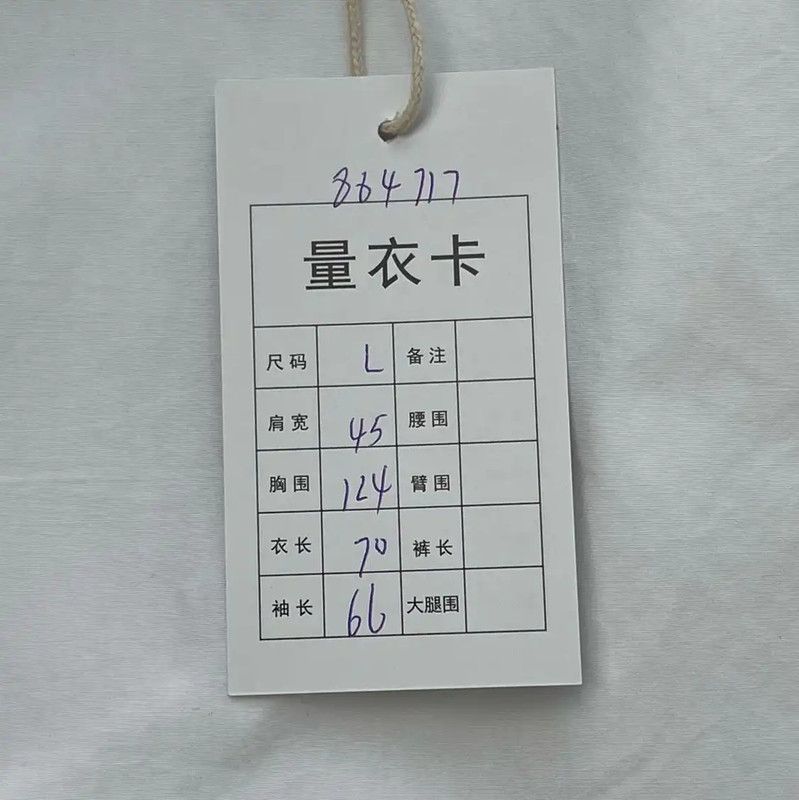 864717
量衣卡
尺码 L 备注
肩宽 45 腰围
胸围 124 臂围
衣长 70 裤长
袖长 66 大腿围